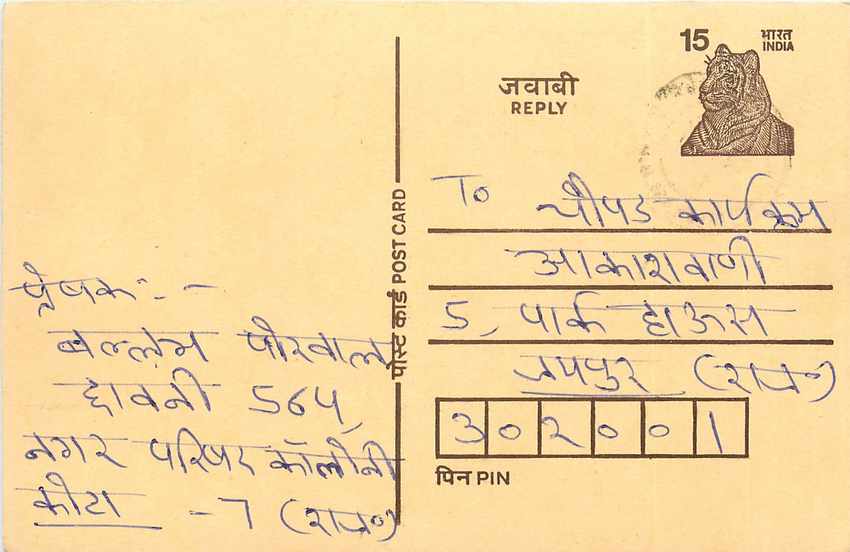 15
भारत
INDIA
जवाबी
REPLY
पोस्ट कार्ड POST CARD
To चौपड कार्यक्रम
आकाशवाणी
5, पार्क हाऊस
जयपुर (राज॰)
302001
पिन PIN
प्रेषक :- -
बल्लभ पोरवाल
छावनी 564,
नगर परिषद कॉलोनी
कोटा - 7 (राज॰)